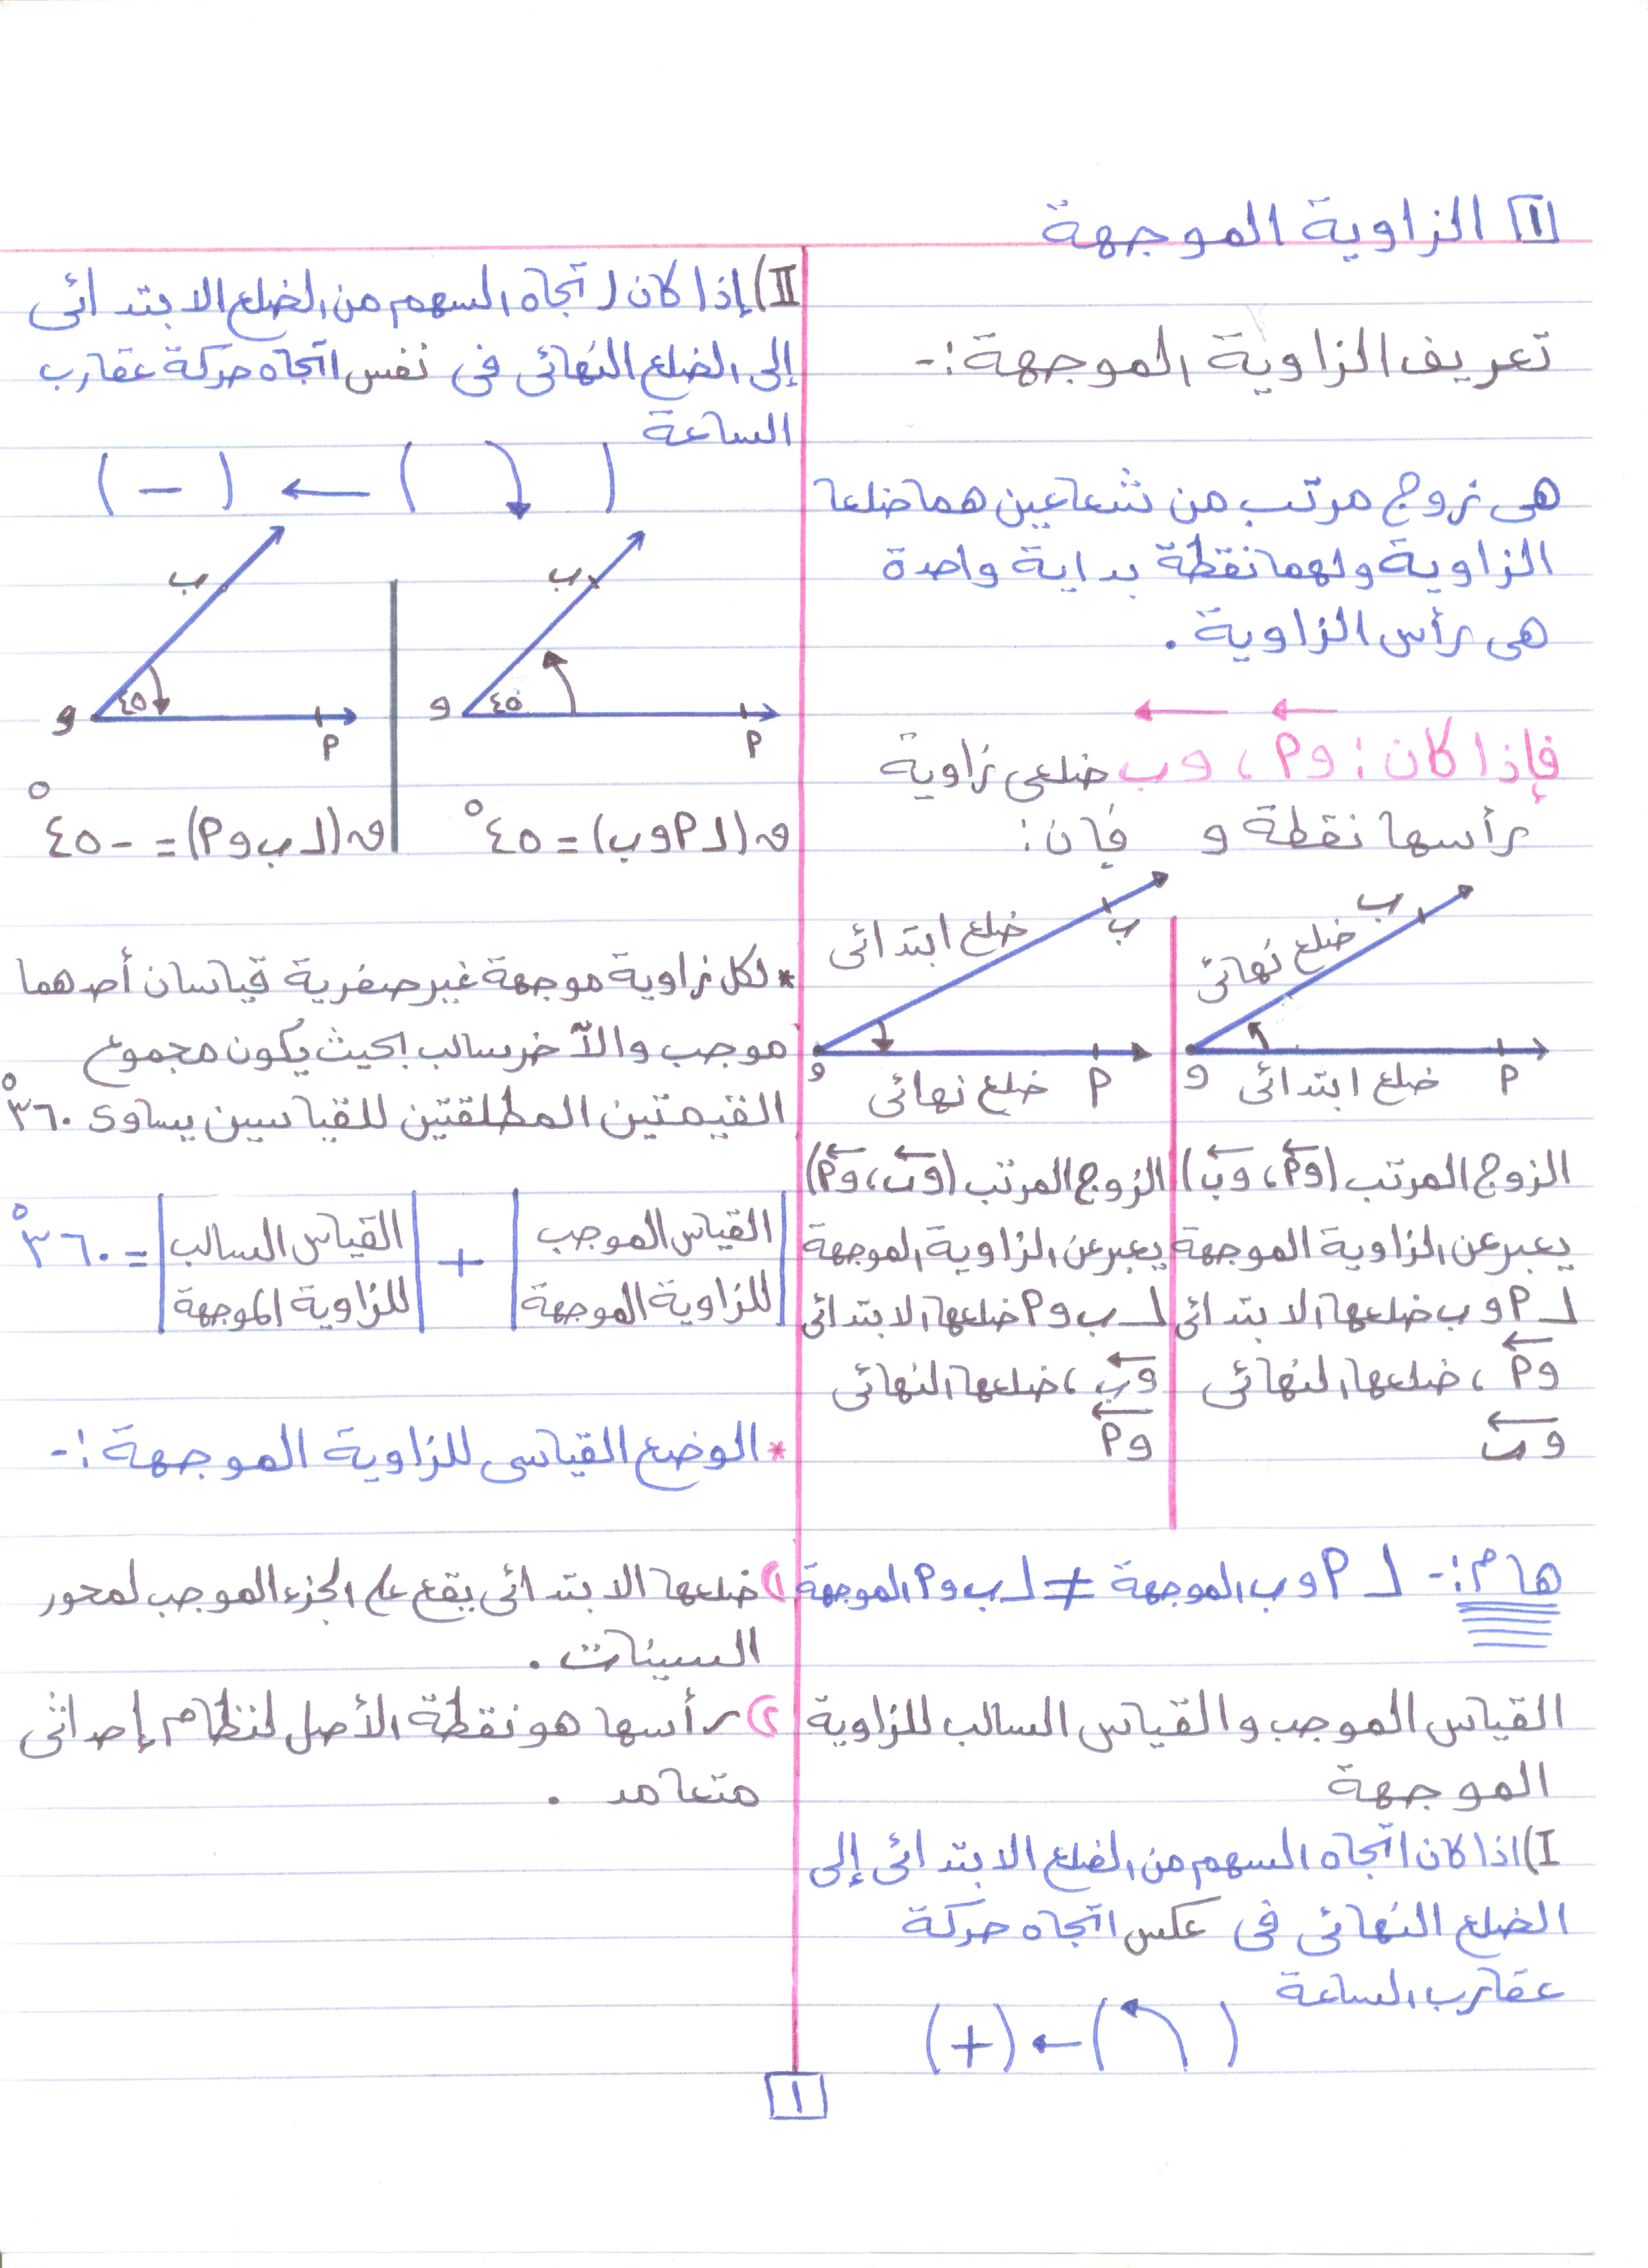 ١ الزاوية الموجهة
تعريف الزاوية الموجهة :-
هى زوج مرتب من شعاعين هما ضلعا
الزاوية ولهما نقطة بداية واحدة
هى رأس الزاوية .
فإذا كان : و P ، و ب ضلعى زاوية
رأسها نقطة و فإن :
ضلع نهائى
ب
ضلع ابتدائى
و
P
ضلع ابتدائى
ب
ضلع نهائى
و
P
الزوج المرتب (و P ، و ب)
يعبر عن الزاوية الموجهة
∠ P و ب ضلعها الابتدائى
و P ، ضلعها النهائى
و ب
الزوج المرتب (و ب ، و P)
يعبر عن الزاوية الموجهة
∠ ب و P ضلعها الابتدائى
و ب ، ضلعها النهائى
و P
هام :- ∠ P و ب الموجهة ≠ ∠ ب و P الموجهة
القياس الموجب والقياس السالب للزاوية
الموجهة
I) اذا كان اتجاه السهم من الضلع الابتدائى إلى
الضلع النهائى فى عكس اتجاه حركة
عقارب الساعة
( ) ← (+)
II) إذا كان اتجاه السهم من الضلع الابتدائى
إلى الضلع النهائى فى نفس اتجاه حركة عقارب
الساعة
( ) ← (-)
ب
٤٥°
و
P
ب
٤٥
و
P
ق(∠ P و ب) = ٤٥°
ق(∠ ب و P) = -٤٥°
* لكل زاوية موجهة غير صفرية قياسان أحدهما
موجب والآخر سالب بحيث يكون مجموع
القيمتين المطلقتين للقياسين يساوى ٣٦٠°
|القياس الموجب للزاوية الموجهة| + |القياس السالب للزاوية الموجهة| = ٣٦٠°
* الوضع القياسى للزاوية الموجهة :-
١) ضلعها الابتدائى يقع على الجزء الموجب لمحور
السينات .
٢) رأسها هو نقطة الأصل لنظام إحداثى
متعامد .
١